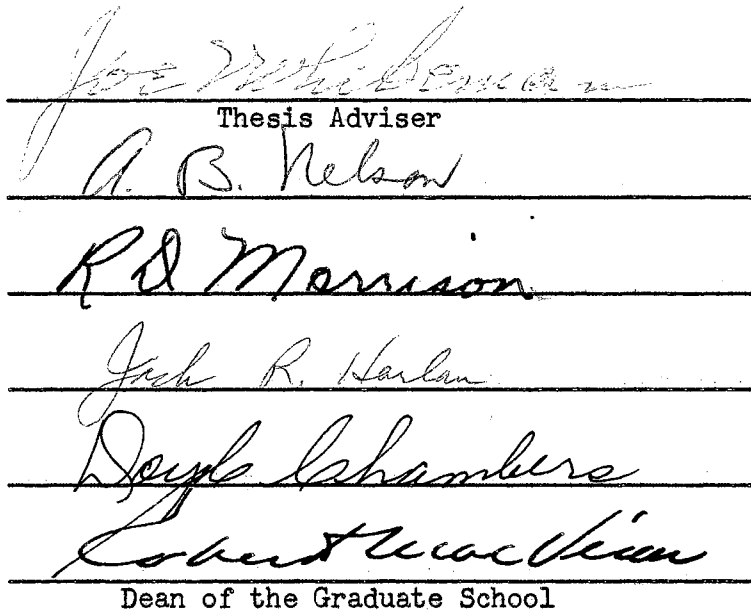 Joe Whiteman
Thesis Adviser
A. B. Nelson
R D Morrison
Jack R. Harlan
Doyle Chambers
Robert MacVicar
Dean of the Graduate School